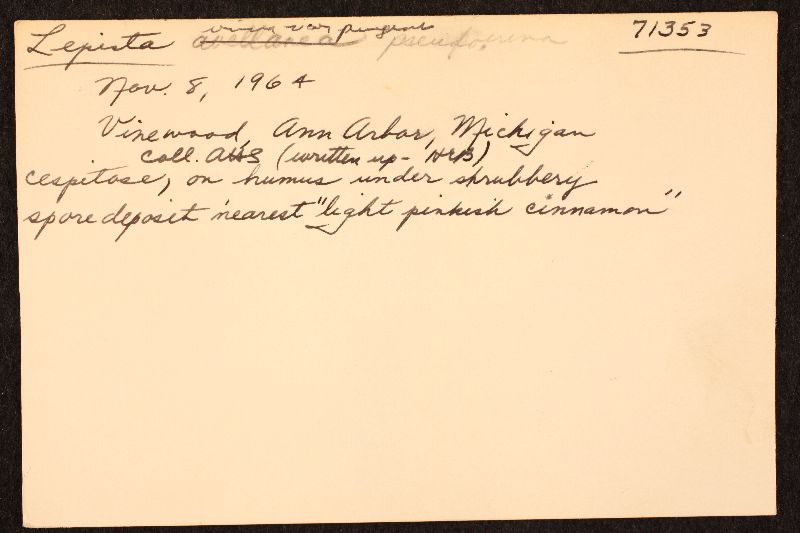 Lepista avellanea 71353
Nov. 8, 1964
Vinewood, Ann Arbor, Michigan
Coll. AHS (written up - HEB)
cespitose, on humus under shrubbery
spore deposit nearest "light pinkish cinnamon"